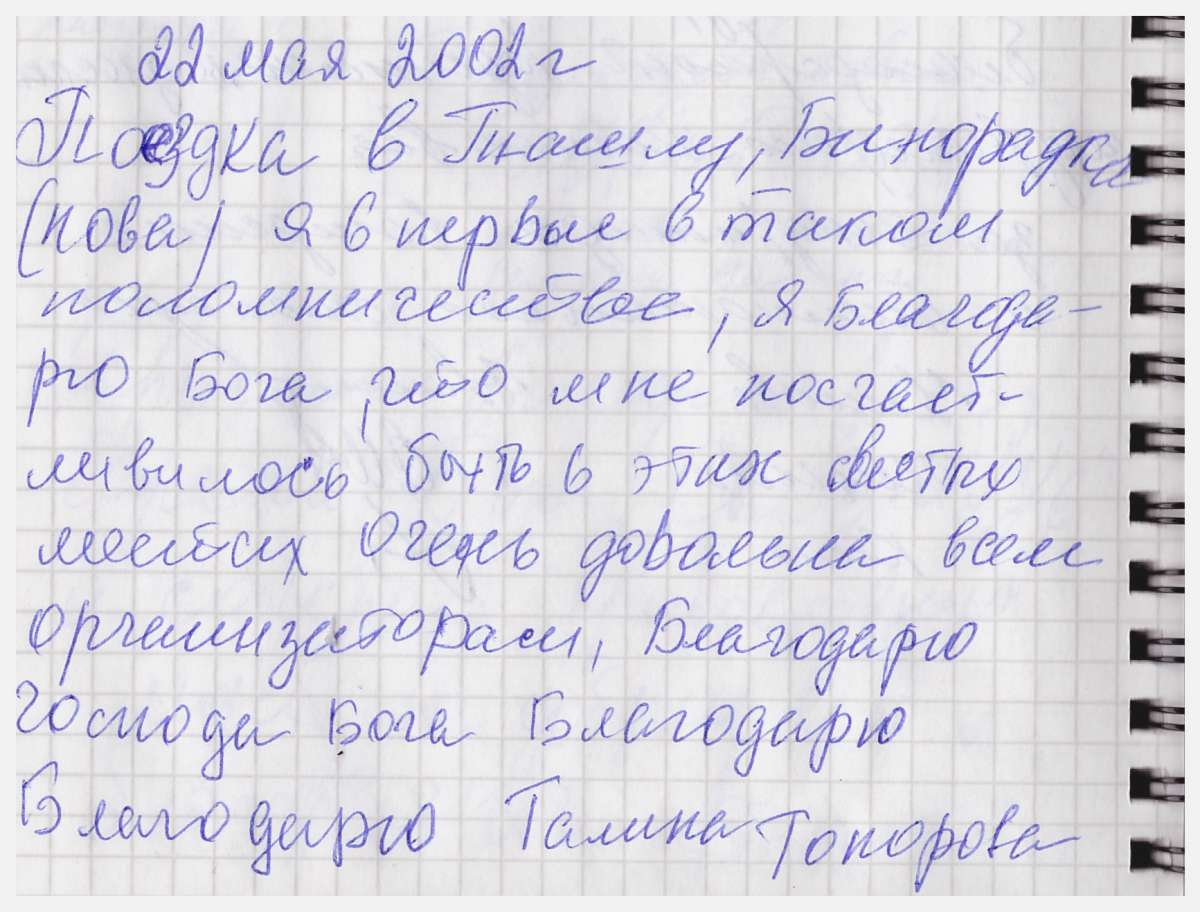 22 мая 2002 г
Поездка в Тнашму, Бинорадка
(нова) я в первые в таком
поломничестве, я Благода-
рю Бога, что мне посчаст-
ливилось быть в этих святых
местах Очень довольна всем
организаторам, Благодарю
господа Бога Благодарю
Благодарю Галина Топорова